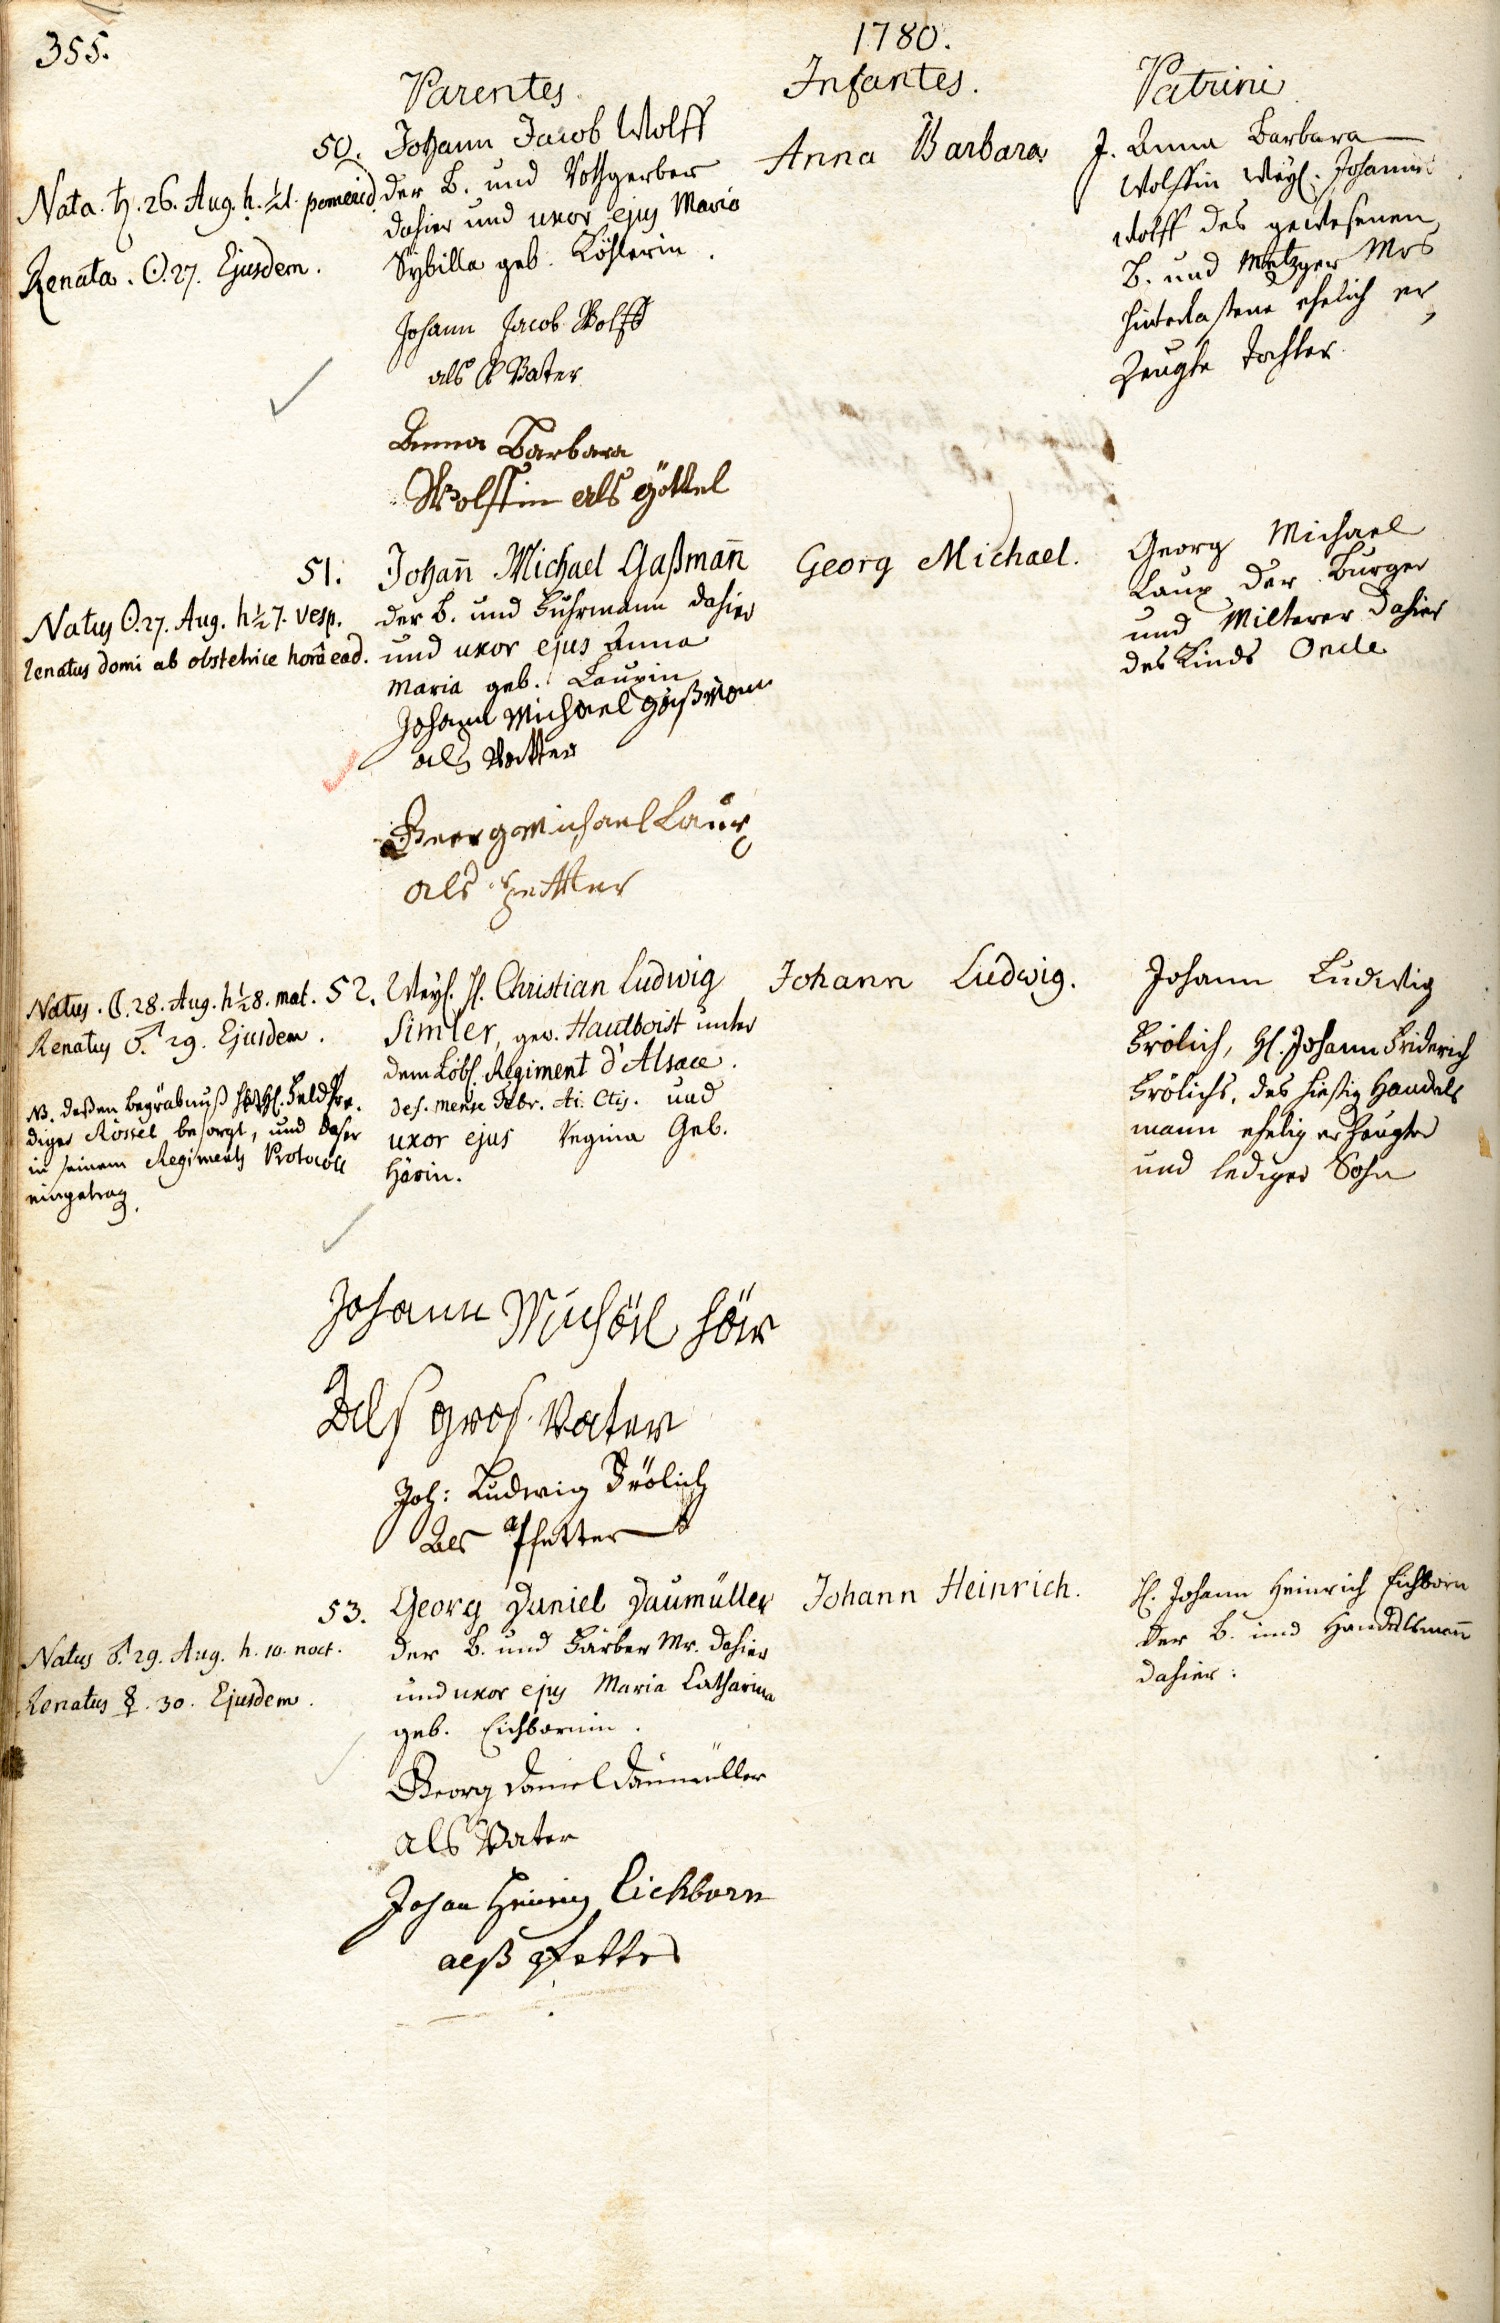 355.
1780.
Parentes
Infantes.
Patrini
50.
Nata. ♄. 26. Aug. h. ½1. pomerid.
Renata. ☉. 27. Ejusdem.
Johann Jacob Wolff
der B. und Rothgerber
dahier und uxor ejus Maria
Sybilla geb. Köhlerin.
Johann Jacob Wolff
als Vater
Anna Barbara
Wolffin als göttel
Anna Barbara
J. Anna Barbara
Wolffin Weyl. Johannes
Wolff des gewesenen
B. und Metzger Mrs
hinterlaßene ehelich er,
zeugte Tochter.
51.
Natus ☉. 27. Aug. h ½7. vesp.
renatus domi ab obstetrice horâ ead.
Johann̄ Michael Gaßmañ
der B. und Fuhrmann dahier
und uxor ejus Anna
Maria geb. Lauxin
Johann Michael Gaßmann
als Vatter
Georg Michael Laux
als Pfetter
Georg Michael.
Georg Michael
Laux der Burger
und Milterer dahier
des Kinds Oncle
52.
Natus. ☾. 28. Aug. h ½8. mat.
Renatus ♂. 29. Ejusdem.
NB. deßen Begräbnuß hat H. Feld Pre,
diger Rössel besorgt, und daher
in seinem Regiments Protocoll
eingetrag.
Weyl. H. Christian Ludwig
Simler, gew. Hautboist unter
dem Löbl. Regiment d'Alsace.
def. mense Febr. Ai. Ctis. und
uxor ejus Regina Geb.
Härin.
Johann Michäel Här
Als gros Vater
Joh: Ludwig Frölich
Als Pfetter
Johann Ludwig.
Johann Ludwig
Frölich, H. Johann Friderich
Frölichs, des hiesig Handels
mann ehelig erzeugter
und lediger Sohn
53.
Natus ♂. 29. Aug. h. 10. noct.
Renatus ☿. 30. Ejusdem.
Georg Daniel Daumüller
der B. und Färber Mr. dahier
und uxor ejus Maria Catharina
geb. Eichbornin.
Georg Daniel Daumüller
als Vater
Johan Heinrig Eichborn
alß pfetter
Johann Heinrich.
H. Johann Heinrich Eichborn
der B. und Handelsmañ
dahier.